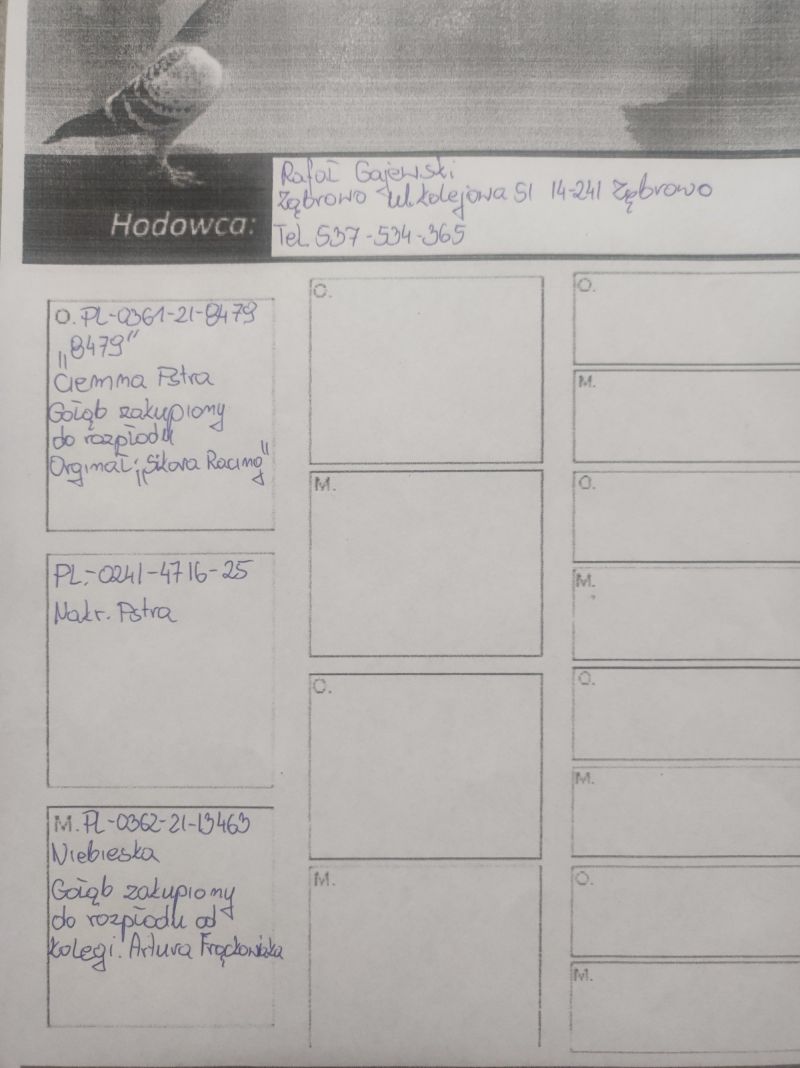 Rafał Gajewski
Ząbrowo ul. Kolejowa 51 14-241 Ząbrowo
Hodowca:
Tel. 537-534-365
O. PL-0361-21-8479
„8479"
Ciemna Pstra
Gołąb zakupiony
do rozpłodu
Orginał; „Sikora Racing"
PL-0241-4716-25
Nakr. Pstra
M. PL-0362-21-13463
Niebieska
Gołąb zakupiony
do rozpłodu od
kolegi. Artura Frąckowiaka
O.
M.
O.
M.
O.
M.
O.
M.
O.
M.
O.
M.